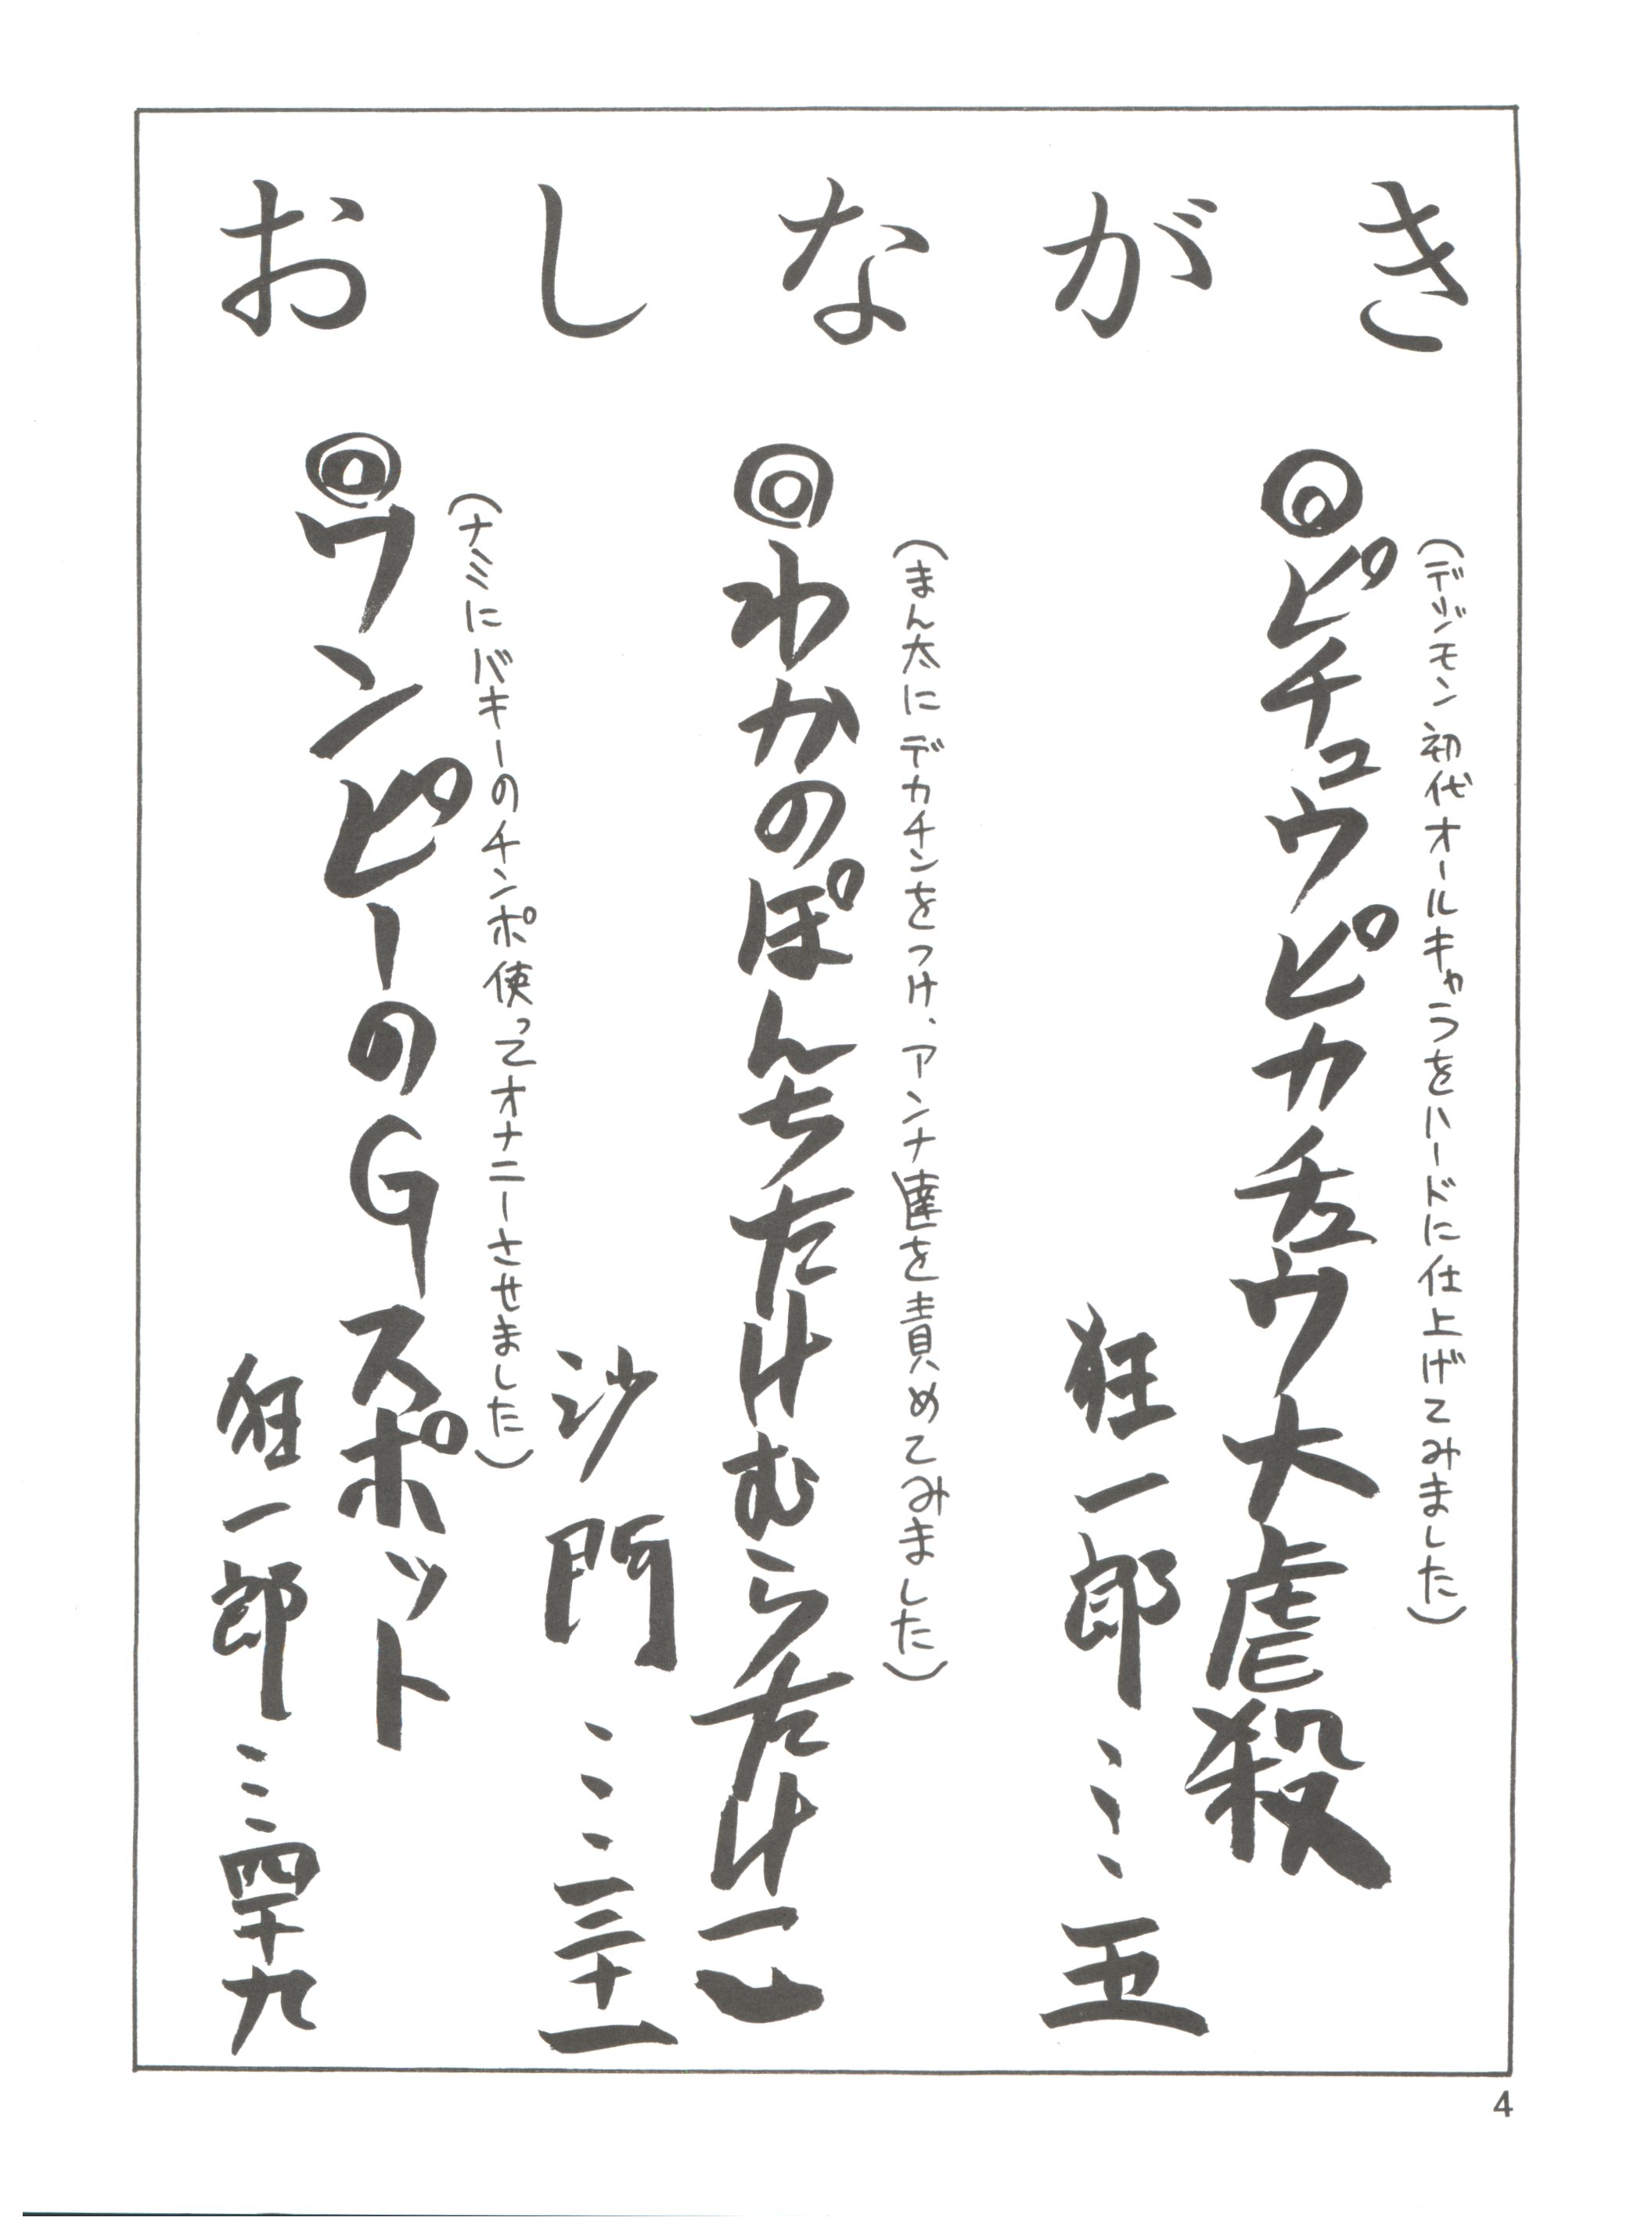 おしながき
(デジモン初代オールキャラをハードに仕上げてみました)
◎ピチュウピカチュウ大虐殺
狂一郎………五
(まん太にデカチンをつけ、アンナ達を責めてみました)
◎わかのぽんちたけむらたけこ
沙門………三十一
(ナミにバキーのチンポ使ってオナニーさせました)
◎ワンピーのGスポット
狂一郎…四十九
4